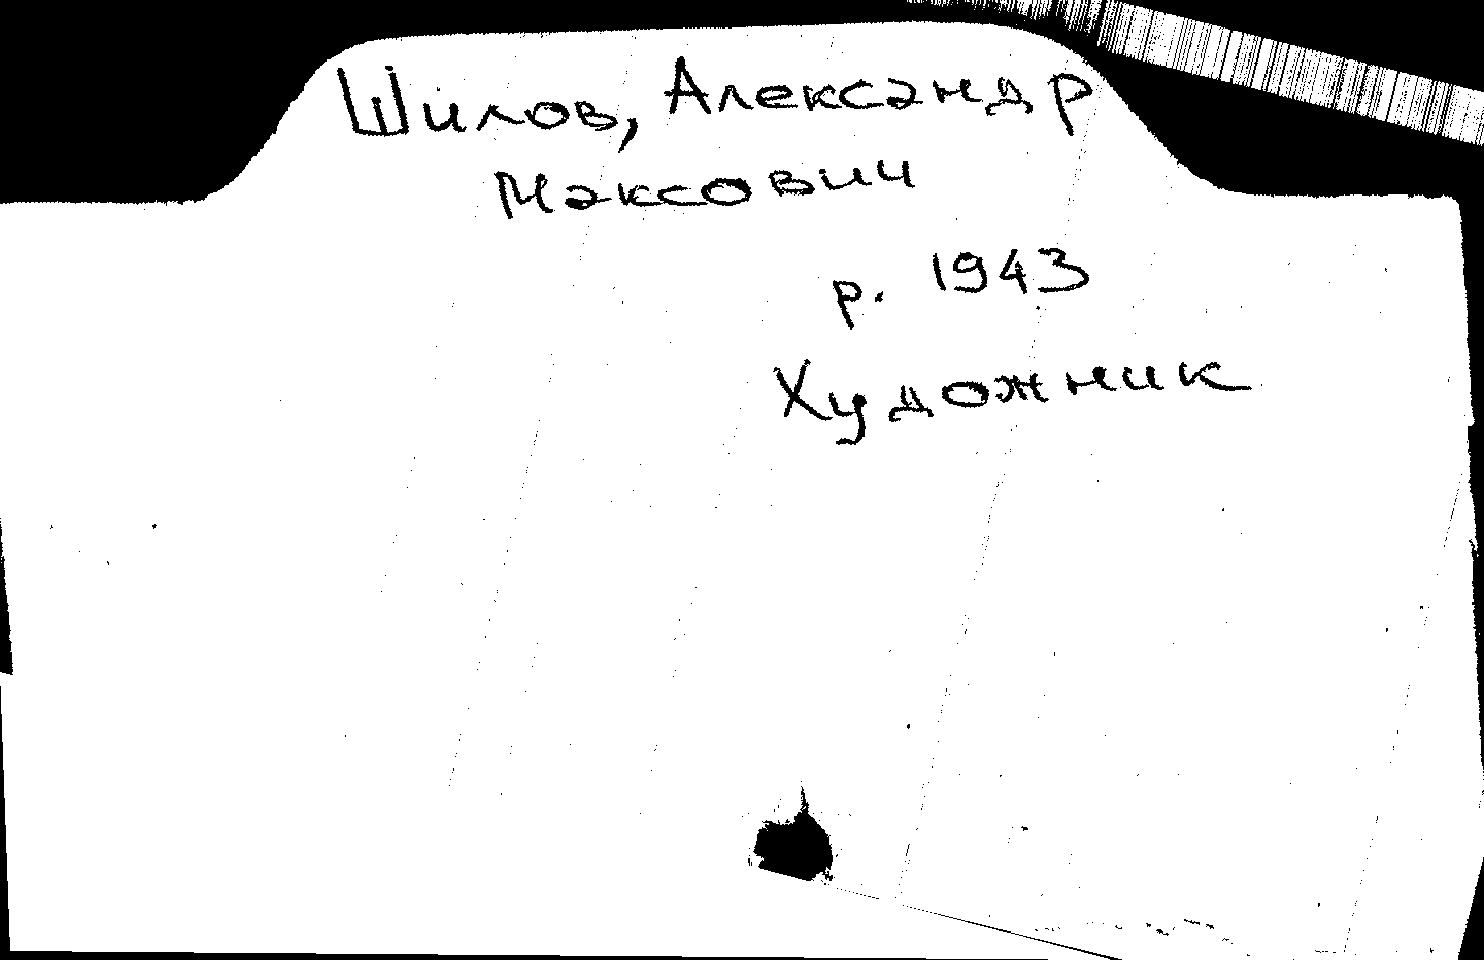 Шилов, Александр
Максович
р. 1943
Художник